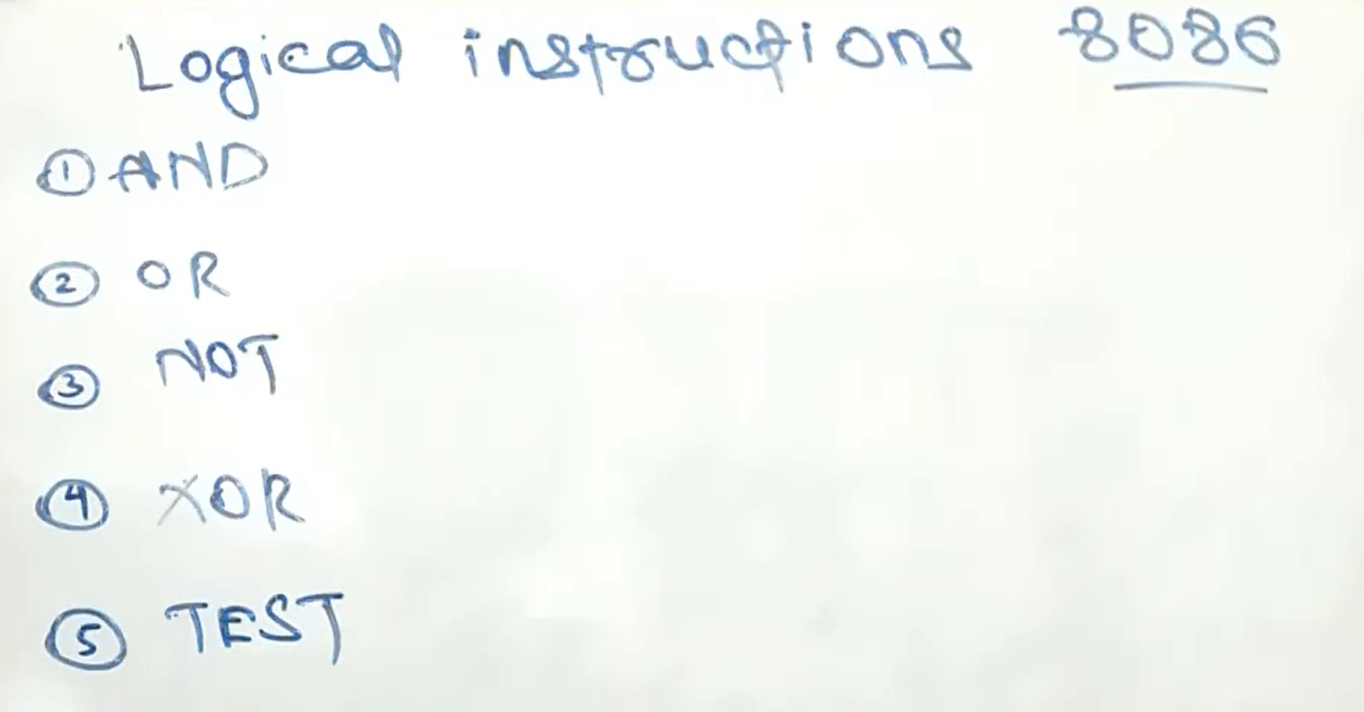 Logical instructions 8086
① AND
② OR
③ NOT
④ XOR
⑤ TEST